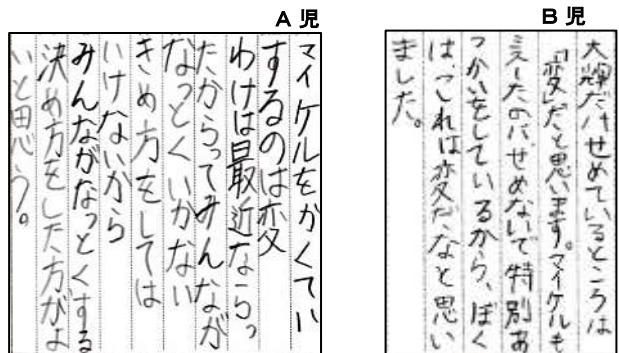 A児
マイケルをかくてい
するのは変
わけは最近ならっ
たからってみんなが
なっとくいかない
きめ方をしては
いけないから
みんながなっとくする
決め方をした方がよ
いと思う。
B児
大輝だけせめているところは
「変」だと思います。マイケルも
ミスしたのにせめないで特別あ
つかいをしているから、ぼく
は、これは変だなと思い
ました。